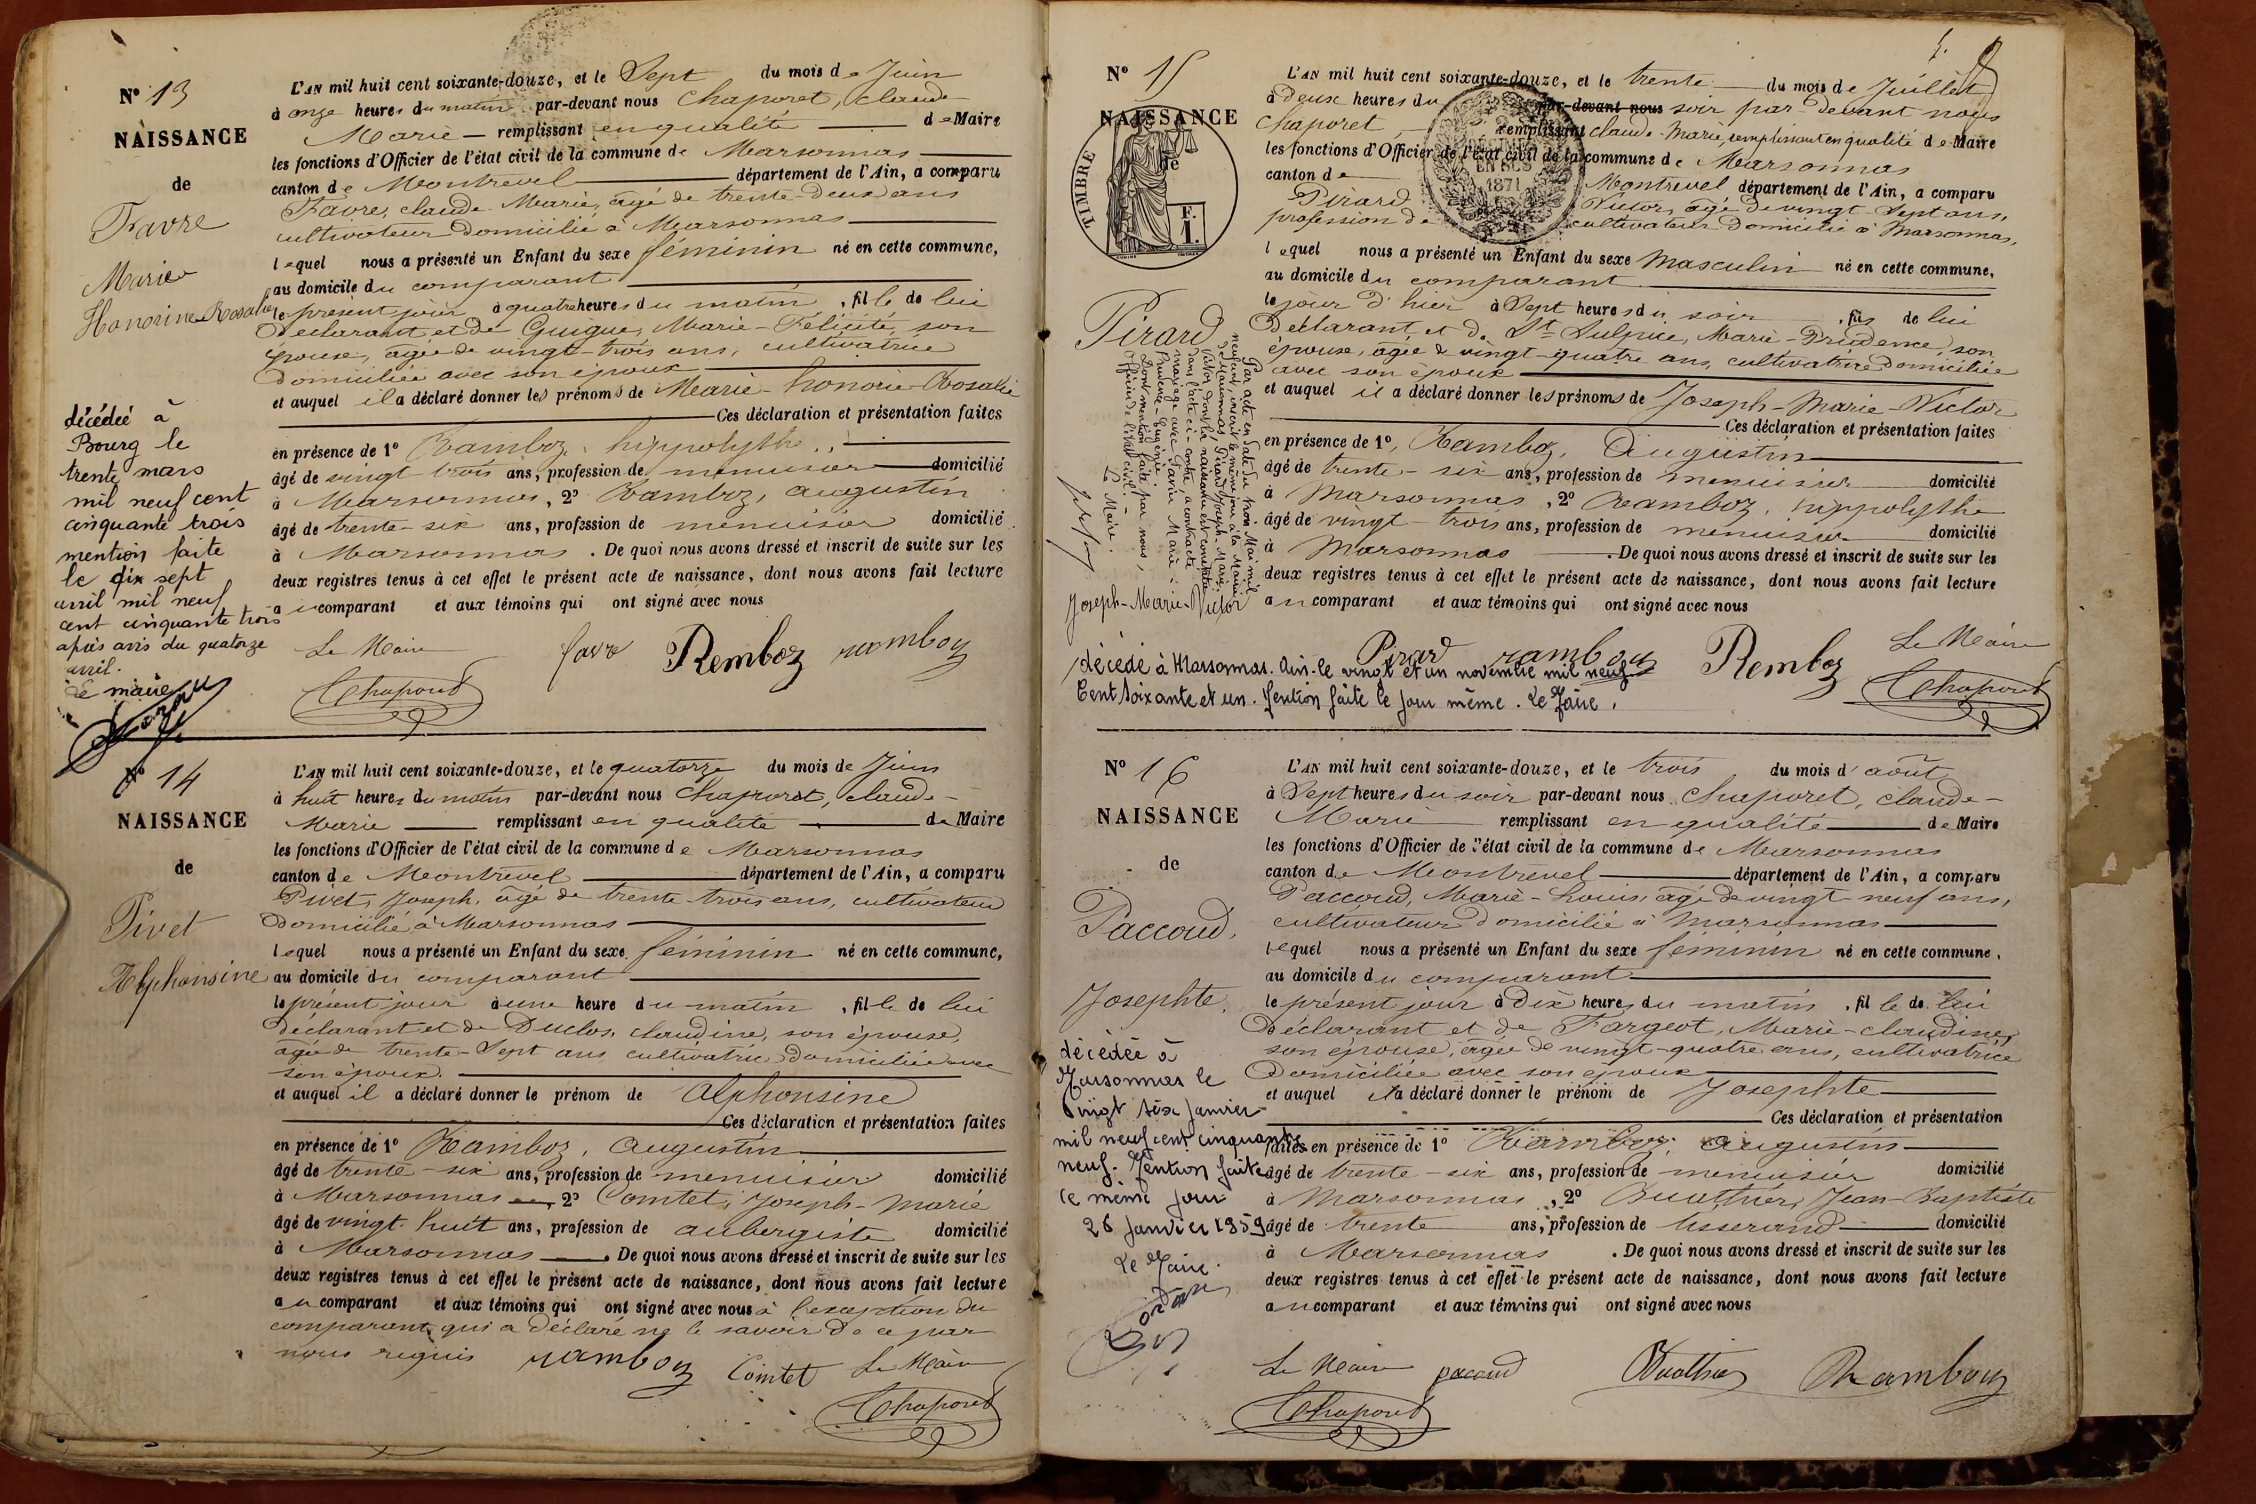 N° 13
NAISSANCE
de
Favre
Marie
Honorine-Rosalie
décédeé à
Bourg le
trente mars
mil neuf cent
cinquante trois
mention faite
le dix sept
avril mil neuf
cent cinquante trois
après avis du quatorze
avril.
Le maire
L'AN mil huit cent soixante-douze, et le Sept du mois de Juin
à onze heures du matin par-devant nous Chaporet, Claude-
Marie — remplissant en qualité — de Maire
les fonctions d'Officier de l'état civil de la commune de Marsonnas
canton de Montrevel département de l'Ain, a comparu
Favre, claude Marie, âgé de trente-deux ans
cultivateur domicilié à Marsonnas
lequel nous a présenté un Enfant du sexe féminin né en cette commune,
au domicile du comparant
le présent jour à quatre heures du matin, fille de lui
Déclarant et de Guigue, Marie-Félicité, son
épouse, âgée de vingt-trois ans, cultivatrice
domiciliée avec son époux
et auquel il a déclaré donner les prénoms de Marie-honorie-Rosalie
Ces déclaration et présentation faites
en présence de 1° Ramboz, hippolythe,
âgé de vingt trois ans, profession de menuisier domicilié
à Marsonnas, 2° Ramboz, augustin
âgé de trente-six ans, profession de menuisier domicilié
à Marsonnas. De quoi nous avons dressé et inscrit de suite sur les
deux registres tenus à cet effet le présent acte de naissance, dont nous avons fait lecture
au comparant et aux témoins qui ont signé avec nous
Le Maire favre Remboz ramboz
Chaporet
N° 14
NAISSANCE
de
Pivet
Alphonsine
L'AN mil huit cent soixante-douze, et le quatorze du mois de Juin
à huit heures du matin par-devant nous Chaporet, claude-
Marie — remplissant en qualité — de Maire
les fonctions d'Officier de l'état civil de la commune de Marsonnas
canton de Montrevel département de l'Ain, a comparu
Pivet, Joseph, âgé de trente-trois ans, cultivateur
domicilié à Marsonnas
lequel nous a présenté un Enfant du sexe féminin né en cette commune,
au domicile du comparant
le présent jour à une heure du matin, fille de lui
déclarant et de Duclos, claudine, son épouse,
âgée de trente-Sept ans cultivatrice domiciliée avec
son époux.
et auquel il a déclaré donner le prénom de Alphonsine
Ces déclaration et présentation faites
en présence de 1° Ramboz, augustin
âgé de trente-six ans, profession de menuisier domicilié
à Marsonnas, 2° Comtet, Joseph-Marie
âgé de vingt-huit ans, profession de aubergiste domicilié
à Marsonnas. De quoi nous avons dressé et inscrit de suite sur les
deux registres tenus à cet effet le présent acte de naissance, dont nous avons fait lecture
au comparant et aux témoins qui ont signé avec nous à l'exception du
comparant qui a déclaré ne le savoir de ce par
nous requis ramboz Comtet Le Maire
Chaporet
N° 15
NAISSANCE
de
TIMBRE
F.
I.
Pirard
Joseph-Marie-Victor
Par acte en date du trois Mai mil
neuf cent, inscrit le même jour à la Mairie
de Marsonnas, Pirard Joseph-Marie-
Victor dont la naissance est constatée
dans l'acte ci-contre, a contracté
mariage avec Favre Marie
Prudence-Eugénie.
Dont mention faite par nous,
officier de l'état civil.
Le Maire.
L'AN mil huit cent soixante-douze, et le trente du mois de Juillet
à Deux heures du par-devant nous soir par devant nous
Chaporet remplissant claude-Marie, remplissant en qualité de Maire
les fonctions d'Officier de l'état civil de la commune de Marsonnas
canton de Montrevel département de l'Ain, a comparu
Pirard Victor, âgé de vingt-Sept ans,
profession de cultivateur domicilié à Marsonnas,
EN SUS
1871
lequel nous a présenté un Enfant du sexe Masculin né en cette commune,
au domicile du comparant
le jour d'hier à Sept heures du soir, fils de lui
Déclarant et de St Sulpice, Marie-Prudence, son
épouse, âgée de vingt-quatre ans, cultivatrice domiciliée
avec son époux
et auquel il a déclaré donner les prénoms de Joseph-Marie-Victor
Ces déclaration et présentation faites
en présence de 1°, Ramboz, Augustin
âgé de trente-six ans, profession de menuisier domicilié
à Marsonnas, 2° Ramboz, hippolythe
âgé de vingt-trois ans, profession de menuisier domicilié
à Marsonnas. De quoi nous avons dressé et inscrit de suite sur les
deux registres tenus à cet effet le présent acte de naissance, dont nous avons fait lecture
au comparant et aux témoins qui ont signé avec nous
Pirard ramboz Remboz Le Maire
Chaporet
décédé à Marsonnas. Ain. le vingt et un novembre mil neuf
Cent soixante et un. Mention faite le jour même. Le Maire.
N° 16
NAISSANCE
de
Paccoud,
Josephte.
décédée à
Marsonnas le
Vingt six janvier
mil neuf cent cinquante
neuf. Mention faite
ce même jour
26 Janvier 1959
Le Maire.
L'AN mil huit cent soixante-douze, et le trois du mois d'août
à Sept heures du soir par-devant nous Chaporet, claude-
Marie remplissant en qualité de Maire
les fonctions d'Officier de l'état civil de la commune de Marsonnas
canton de Montrevel département de l'Ain, a comparu
Paccoud, Marie-Louis, âgé de vingt-neuf ans,
cultivateur domicilié à Marsonnas
lequel nous a présenté un Enfant du sexe féminin né en cette commune,
au domicile du comparant
le présent jour à Dix heures du matin, fille de lui
Déclarant et de Fargeot, Marie-claudine,
son épouse, âgée de vingt-quatre ans, cultivatrice
Domiciliée avec son époux
et auquel il a déclaré donner le prénom de Josephte
Ces déclaration et présentation
faites en présence de 1° Ramboz, augustin
âgé de trente-six ans, profession de menuisier domicilié
à Marsonnas, 2° Buathier, Jean-Baptiste
âgé de trente ans, profession de tisserand domicilié
à Marsonnas. De quoi nous avons dressé et inscrit de suite sur les
deux registres tenus à cet effet le présent acte de naissance, dont nous avons fait lecture
au comparant et aux témoins qui ont signé avec nous
Le Maire paccoud Buathier Ramboz
Chaporet